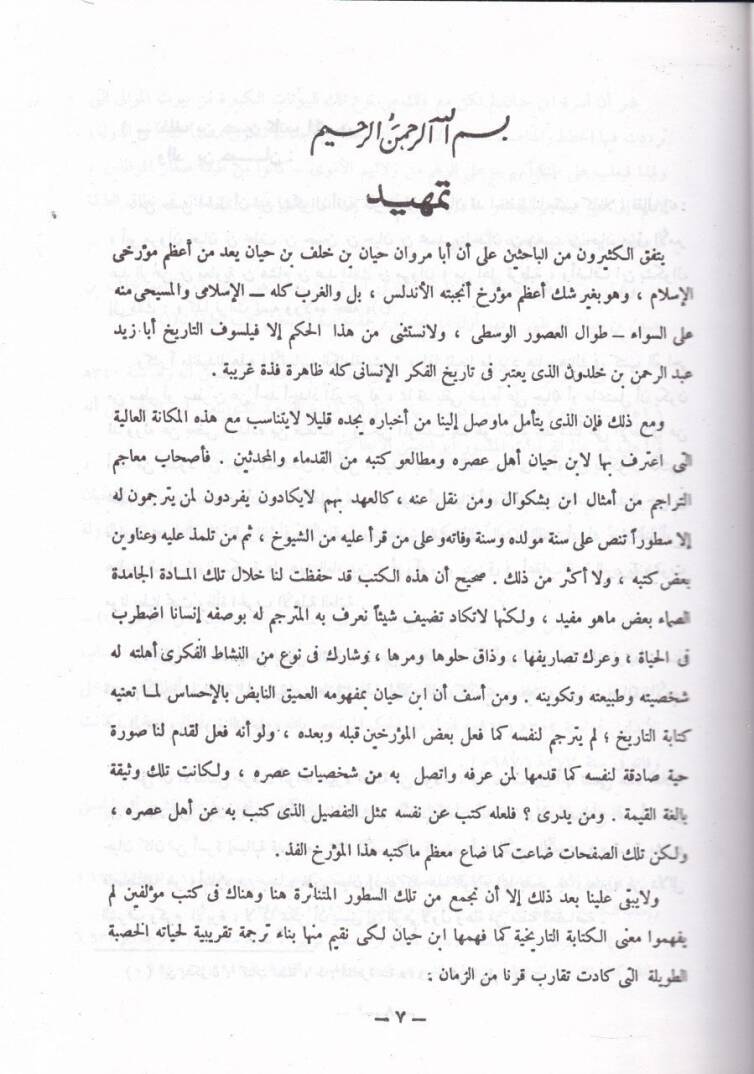 بسم الله الرحمن الرحيم
تمهيد
يتفق الكثيرون من الباحثين على أن أبا مروان حيان بن خلف بن حيان يعد من أعظم مؤرخى
الإسلام ، وهو بغير شك أعظم مؤرخ أنجبته الأندلس ، بل والغرب كله — الإسلامى والمسيحى منه
على السواء — طوال العصور الوسطى ، ولا نستثنى من هذا الحكم إلا فيلسوف التاريخ أبا زيد
عبد الرحمن بن خلدون الذى يعتبر فى تاريخ الفكر الإنسانى كله ظاهرة فذة غريبة .
ومع ذلك فإن الذى يتأمل ما وصل إلينا من أخباره يجده قليلا لا يتناسب مع هذه المكانة العالية
التى اعترف بها لابن حيان أهل عصره ومطالعو كتبه من القدماء والمحدثين . فأصحاب معاجم
التراجم من أمثال ابن بشكوال ومن نقل عنه ، كالعهد بهم لا يكادون يفردون لمن يترجمون له
إلا سطوراً تنص على سنة مولده وسنة وفاته وعلى من قرأ عليه من الشيوخ ، ثم من تلمذ عليه وعناوين
بعض كتبه ، ولا أكثر من ذلك . صحيح أن هذه الكتب قد حفظت لنا خلال تلك المادة الجامدة
الصماء بعض ماهو مفيد ، ولكنها لاتكاد تضيف شيئاً نعرف به المترجم له بوصفه إنسانا اضطرب
فى الحياة ، وعرك تصاريفها ، وذاق حلوها ومرها ، وشارك فى نوع من النشاط الفكرى أهلته له
شخصيته وطبيعته وتكوينه . ومن أسف أن ابن حيان بمفهومه العميق النابض بالإحساس لما تعنيه
كتابة التاريخ ؛ لم يترجم لنفسه كما فعل بعض المؤرخين قبله وبعده ، ولو أنه فعل لقدم لنا صورة
حية صادقة لنفسه كما قدمها لمن عرفه واتصل به من شخصيات عصره ، ولكانت تلك وثيقة
بالغة القيمة . ومن يدرى ؟ فلعله كتب عن نفسه بمثل التفصيل الذى كتب به عن أهل عصره ،
ولكن تلك الصفحات ضاعت كما ضاع معظم ماكتبه هذا المؤرخ الفذ.
ولايبقى علينا بعد ذلك إلا أن نجمع من تلك السطور المتناثرة هنا وهناك فى كتب مؤلفين لم
يفهموا معنى الكتابة التاريخية كما فهمها ابن حيان لكى نقيم منها بناء ترجمة تقريبية لحياته الخصبة
الطويلة التى كادت تقارب قرنا من الزمان :
— ٧ —